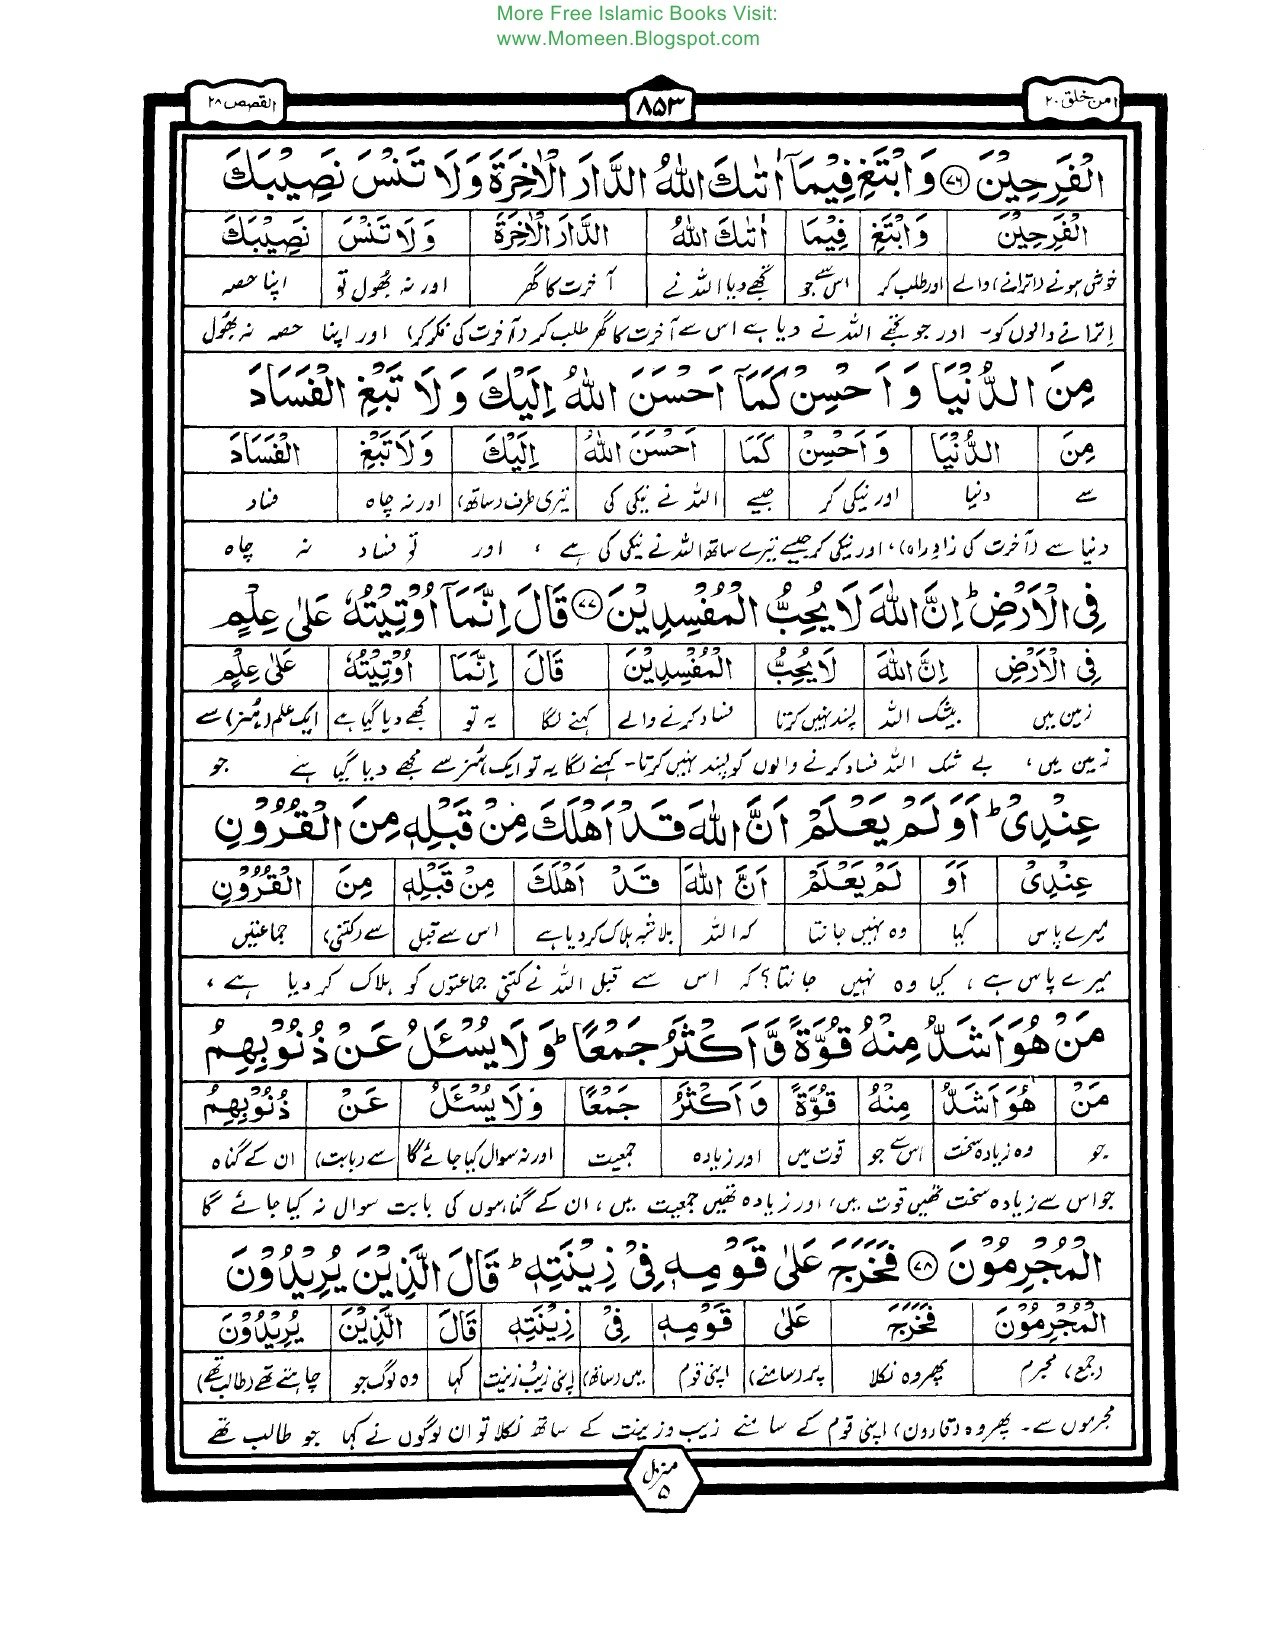 More Free Islamic Books Visit:
www.Momeen.Blogspot.com
امن خلق ۲۰ ۸۵۳ القصص ۲۸
الْفَرِحِيْنَ ۷۶ وَابْتَغِ فِيْمَاۤ اٰتٰىكَ اللّٰهُ الدَّارَ الْاٰخِرَةَ وَلَا تَنْسَ نَصِيْبَكَ
الْفَرِحِيْنَ وَابْتَغِ فِيْمَا اٰتٰىكَ اللّٰهُ الدَّارَ الْاٰخِرَةَ وَلَا تَنْسَ نَصِيْبَكَ
خوش ہونے (اترانے) والے اور طلب کر اس سے جو تجھے دیا اللہ نے آخرت کا گھر اور نہ بھول تو اپنا حصہ
اِترانے والوں کو۔ اور جو تجھے اللہ نے دیا ہے اس سے آخرت کا گھر طلب کر (آخرت کی فکر کر) اور اپنا حصہ نہ بھُول
مِنَ الدُّنْيَا وَاَحْسِنْ كَمَاۤ اَحْسَنَ اللّٰهُ اِلَيْكَ وَلَا تَبْغِ الْفَسَادَ
مِنَ الدُّنْيَا وَاَحْسِنْ كَمَا اَحْسَنَ اللّٰهُ اِلَيْكَ وَلَا تَبْغِ الْفَسَادَ
سے دنیا اور نیکی کر جیسے اللہ نے نیکی کی تیری طرف (ساتھ) اور نہ چاہ فساد
دنیا سے (آخرت کی زادِ راہ)، اور نیکی کر جیسے تیرے ساتھ اللہ نے نیکی کی ہے ، اور تو فساد نہ چاہ
فِي الْاَرْضِ ؕ اِنَّ اللّٰهَ لَا يُحِبُّ الْمُفْسِدِيْنَ ۷۷ قَالَ اِنَّمَاۤ اُوْتِيْتُهٗ عَلٰى عِلْمٍ
فِي الْاَرْضِ اِنَّ اللّٰهَ لَا يُحِبُّ الْمُفْسِدِيْنَ قَالَ اِنَّمَا اُوْتِيْتُهٗ عَلٰى عِلْمٍ
زمین میں بیشک اللہ پسند نہیں کرتا فساد کرنے والے کہنے لگا یہ تو مجھے دیا گیا ہے ایک علم (ہُنر) سے
زمین میں، بے شک اللہ فساد کرنے والوں کو پسند نہیں کرتا۔ کہنے لگا یہ تو ایک ہُنر سے مجھے دیا گیا ہے جو
عِنْدِيْ ؕ اَوَلَمْ يَعْلَمْ اَنَّ اللّٰهَ قَدْ اَهْلَكَ مِنْ قَبْلِهٖ مِنَ الْقُرُوْنِ
عِنْدِيْ اَوَ لَمْ يَعْلَمْ اَنَّ اللّٰهَ قَدْ اَهْلَكَ مِنْ قَبْلِهٖ مِنَ الْقُرُوْنِ
میرے پاس کیا وہ نہیں جانتا کہ اللہ بلاشبہ ہلاک کر دیا ہے اس سے قبل سے (کتنی) جماعتیں
میرے پاس ہے، کیا وہ نہیں جانتا؟ کہ اس سے قبل اللہ نے کتنی جماعتوں کو ہلاک کر دیا ہے ،
مَنْ هُوَ اَشَدُّ مِنْهُ قُوَّةً وَّاَكْثَرُ جَمْعًا ؕ وَلَا يُسْئَلُ عَنْ ذُنُوْبِهِمُ
مَنْ هُوَ اَشَدُّ مِنْهُ قُوَّةً وَاَكْثَرُ جَمْعًا وَلَا يُسْئَلُ عَنْ ذُنُوْبِهِمُ
جو وہ زیادہ سخت اس سے جو قوت میں اور زیادہ جمعیت اور نہ سوال کیا جائے گا سے (بابت) ان کے گناہ
جو اس سے زیادہ سخت تھیں قوت میں، اور زیادہ تھیں جمعیت میں ، ان کے گناہوں کی بابت سوال نہ کیا جائے گا
الْمُجْرِمُوْنَ ۷۸ فَخَرَجَ عَلٰى قَوْمِهٖ فِيْ زِيْنَتِهٖ ؕ قَالَ الَّذِيْنَ يُرِيْدُوْنَ
الْمُجْرِمُوْنَ فَخَرَجَ عَلٰى قَوْمِهٖ فِيْ زِيْنَتِهٖ قَالَ الَّذِيْنَ يُرِيْدُوْنَ
(جمع) مجرم پھر وہ نکلا پر (سامنے) اپنی قوم میں (ساتھ) اپنی زیب و زینت کہا وہ لوگ جو چاہتے تھے (طالب تھے)
مجرموں سے۔ پھر وہ (قارون) اپنی قوم کے سامنے زیب و زینت کے ساتھ نکلا تو ان لوگوں نے کہا جو طالب تھے
منزل ۵